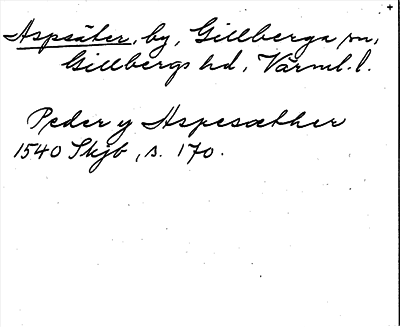 Aspsäter, by, Gillberga sn,
Gillbergs hd, Värml. l.
Peder y Aspesæther
1540 Skjb, s. 170.